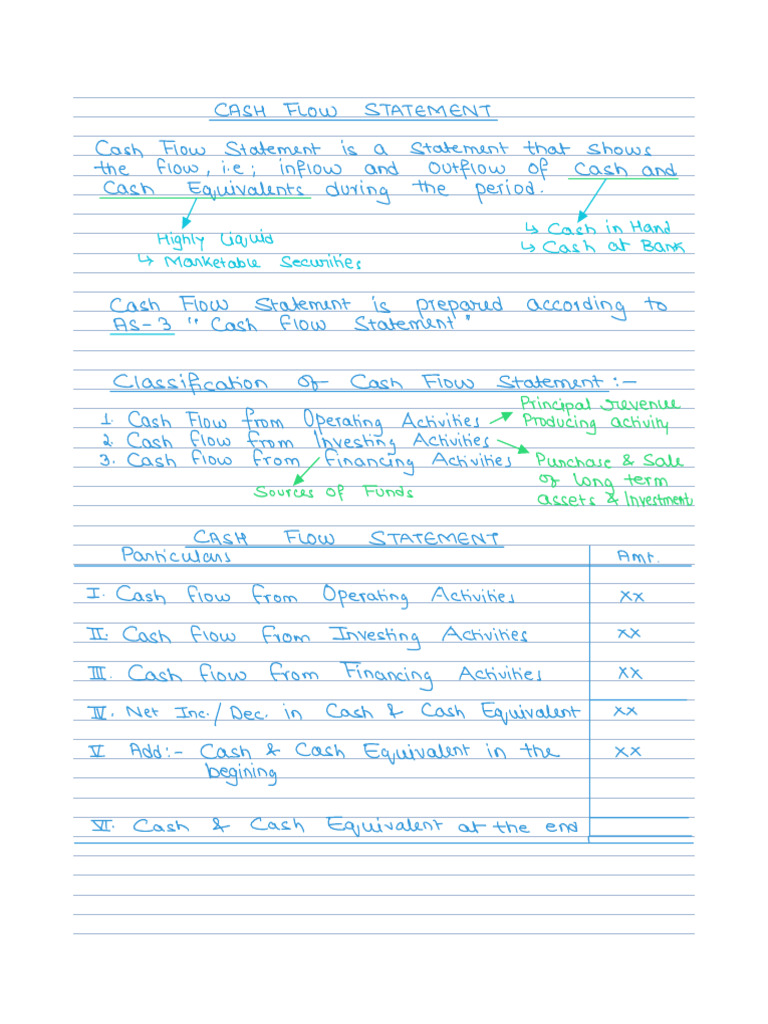 CASH FLOW STATEMENT
Cash Flow Statement is a statement that shows
the flow, i.e; inflow and outflow of Cash and
Cash Equivalents during the period.
Highly Liquid
↳ Marketable Securities
↳ Cash in Hand
↳ Cash at Bank
Cash Flow Statement is prepared according to
AS-3 "Cash flow Statement"
Classification of Cash Flow Statement :-
1. Cash Flow from Operating Activities
Principal revenue
Producing activity
2. Cash flow from Investing Activities
3. Cash flow from Financing Activities
Purchase & Sale
of long term
assets & Investment
Sources of Funds
CASH FLOW STATEMENT
Particulars Amt.
I. Cash flow from Operating Activities xx
II. Cash flow from Investing Activities xx
III. Cash flow from Financing Activities xx
IV. Net Inc./Dec. in Cash & Cash Equivalent xx
V Add:- Cash & Cash Equivalent in the xx
begining
VI. Cash & Cash Equivalent at the end